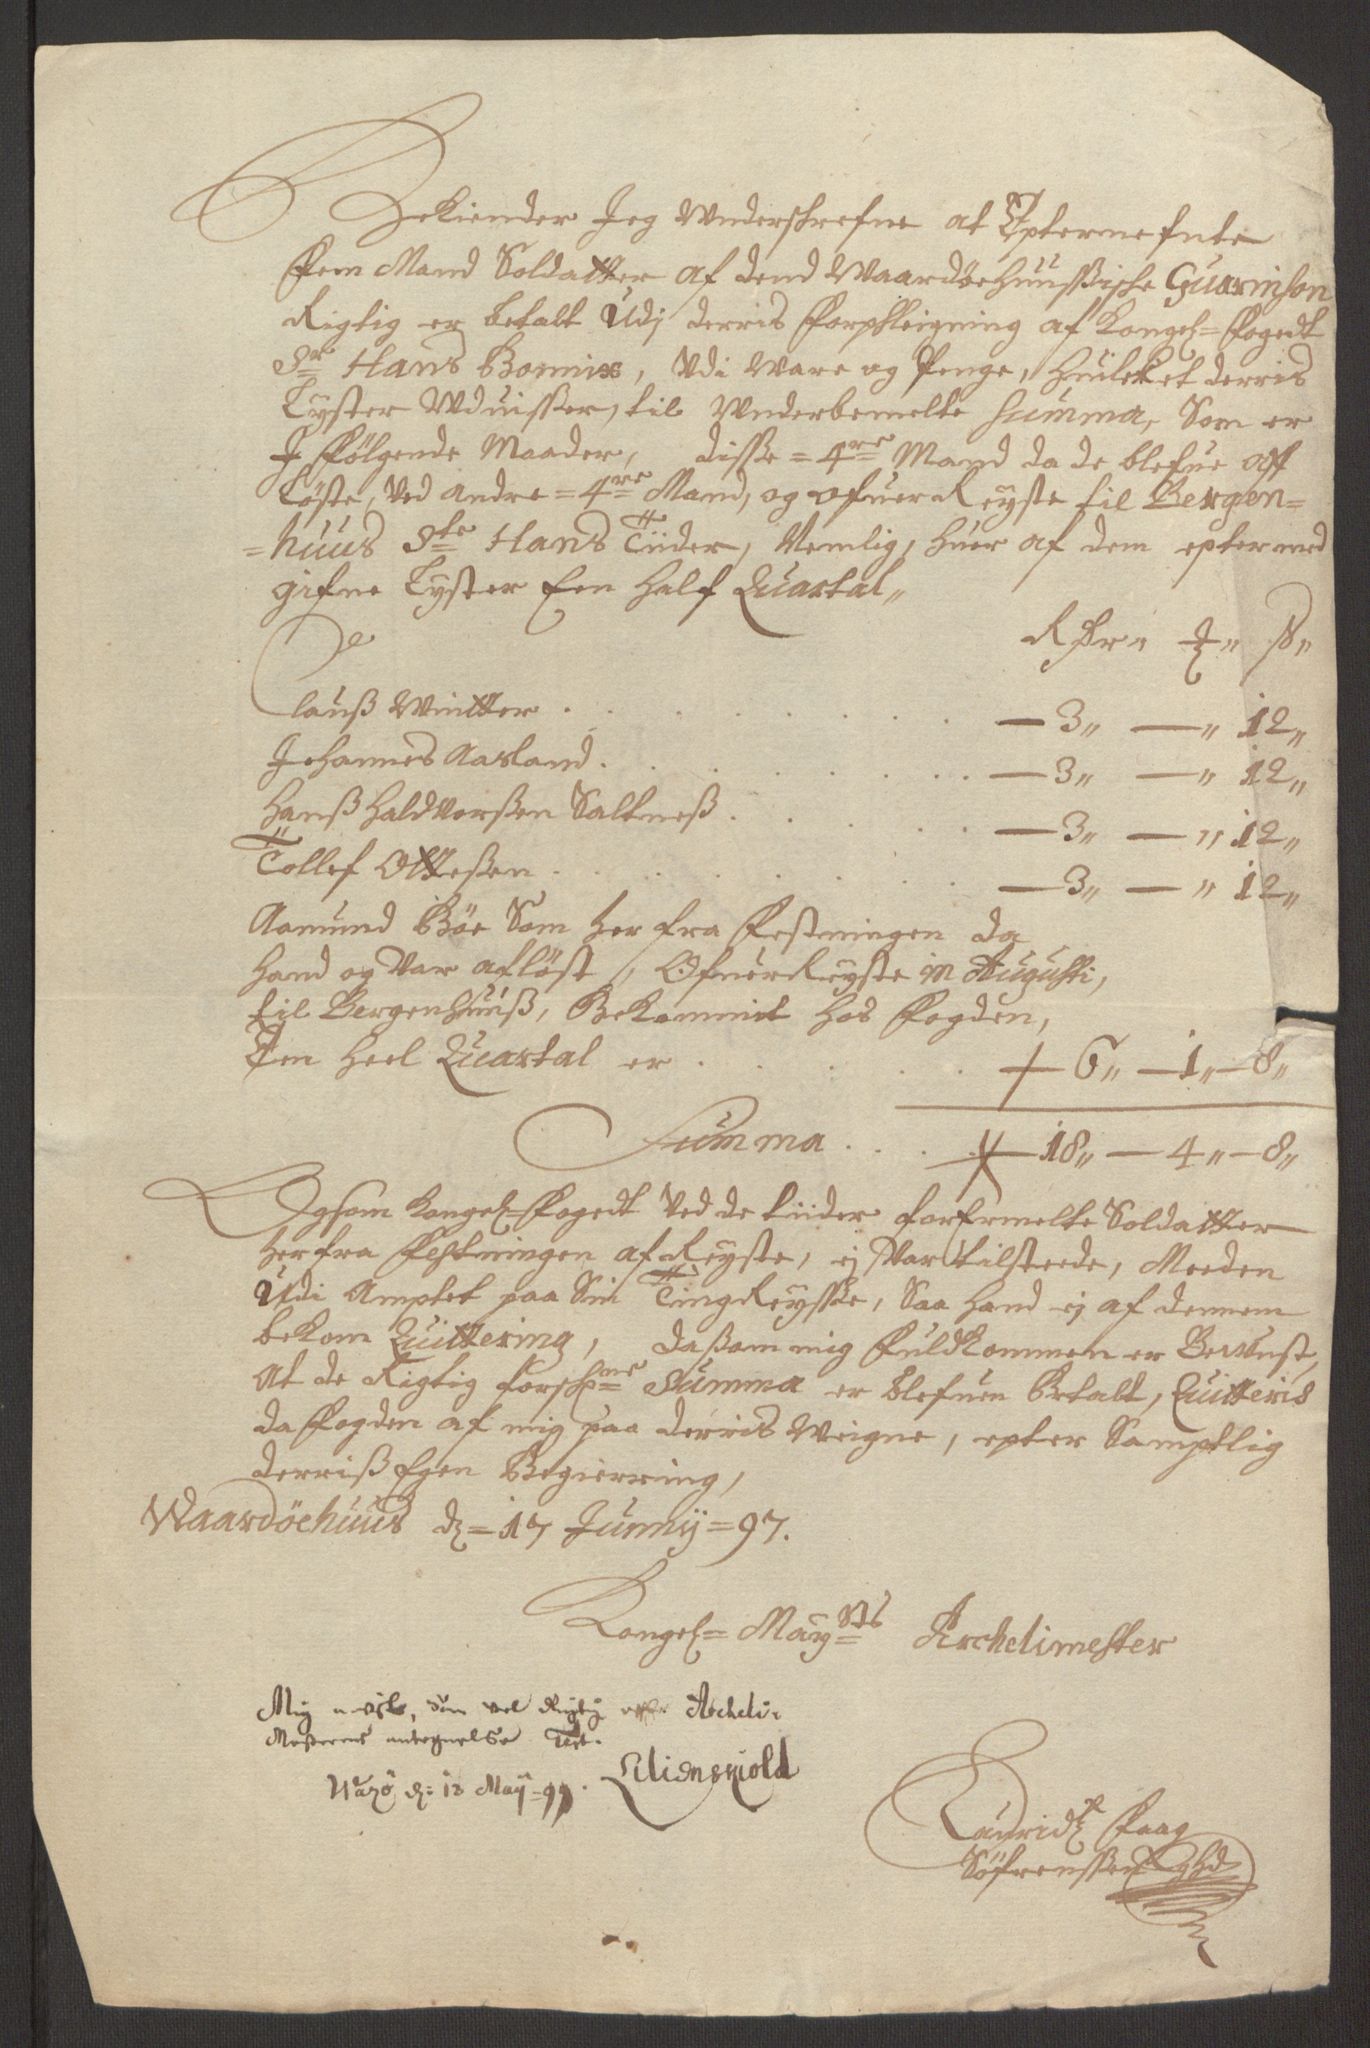 Bekiender Jeg Wnderskrefne at Epternefnte
Fem Mand Soldatter af dend Waardøehuussiske Guarnison
Rigtig er betalt Udj derris Forpfleigning af Kongel= Fogedt
Sr Hans Bonnix, Udi Ware og Penge, Huilcket derris
Lyster Uduisser, til Wnderbemelte Summa, Som er
J Følgende Maader, disse =4re Mand da de blefue aff
Løste, Ved andre =4re Mand, og ofuer Reyste til Bergen=
=huus Ste Hans Tiider, Nemlig, huer af dem epter med
gifne Lyster Een half Quartal"
Rdr" " ß"
Clauß Wintter . . . . — 3" — " 12"
Johannes Aasland . . . . — 3" — " 12"
Hanß Haldvorßen Saltneß . . . . — 3" — " 12"
Tollef Otteßen . . . . — 3" — " 12"
Aamund Böe Som her fra Festningen da
hand og Var afløst, Ofuer Reyste in Augusti,
til Bergenhuuß, Bekommit hos Fogden,
Een heel Quartal er . . . . — 6" — 1" — 8"
Summa . . . — 18" — 4" — 8"
Ogsom Kongel= Fogedt Ved de tiider forermelte Soldatter
her fra Festningen af Reyste, ej Var tilsteede, Meeden
Udi Amptet paa Sin Ting Reysse, Saa hand ej af dennem
bekom Quittering, da som mig Fuldkommen er Bewust,
At de Rigtig forschrne Summa er blefuen Betalt, Quitteris
da Fogden af mig paa derris Weigne, epter Samptlig
derriß Egen Begierring,
Waardøehuus d= 17 Junnij =97.
Kongel= Mayst Archelimester
Mig vel Rigtig Archeli:
Mesterens antegnelse Test.
Waxö d: 18 Maij =99. Lilienskiold
Lauridz Faag
Söfrenssen